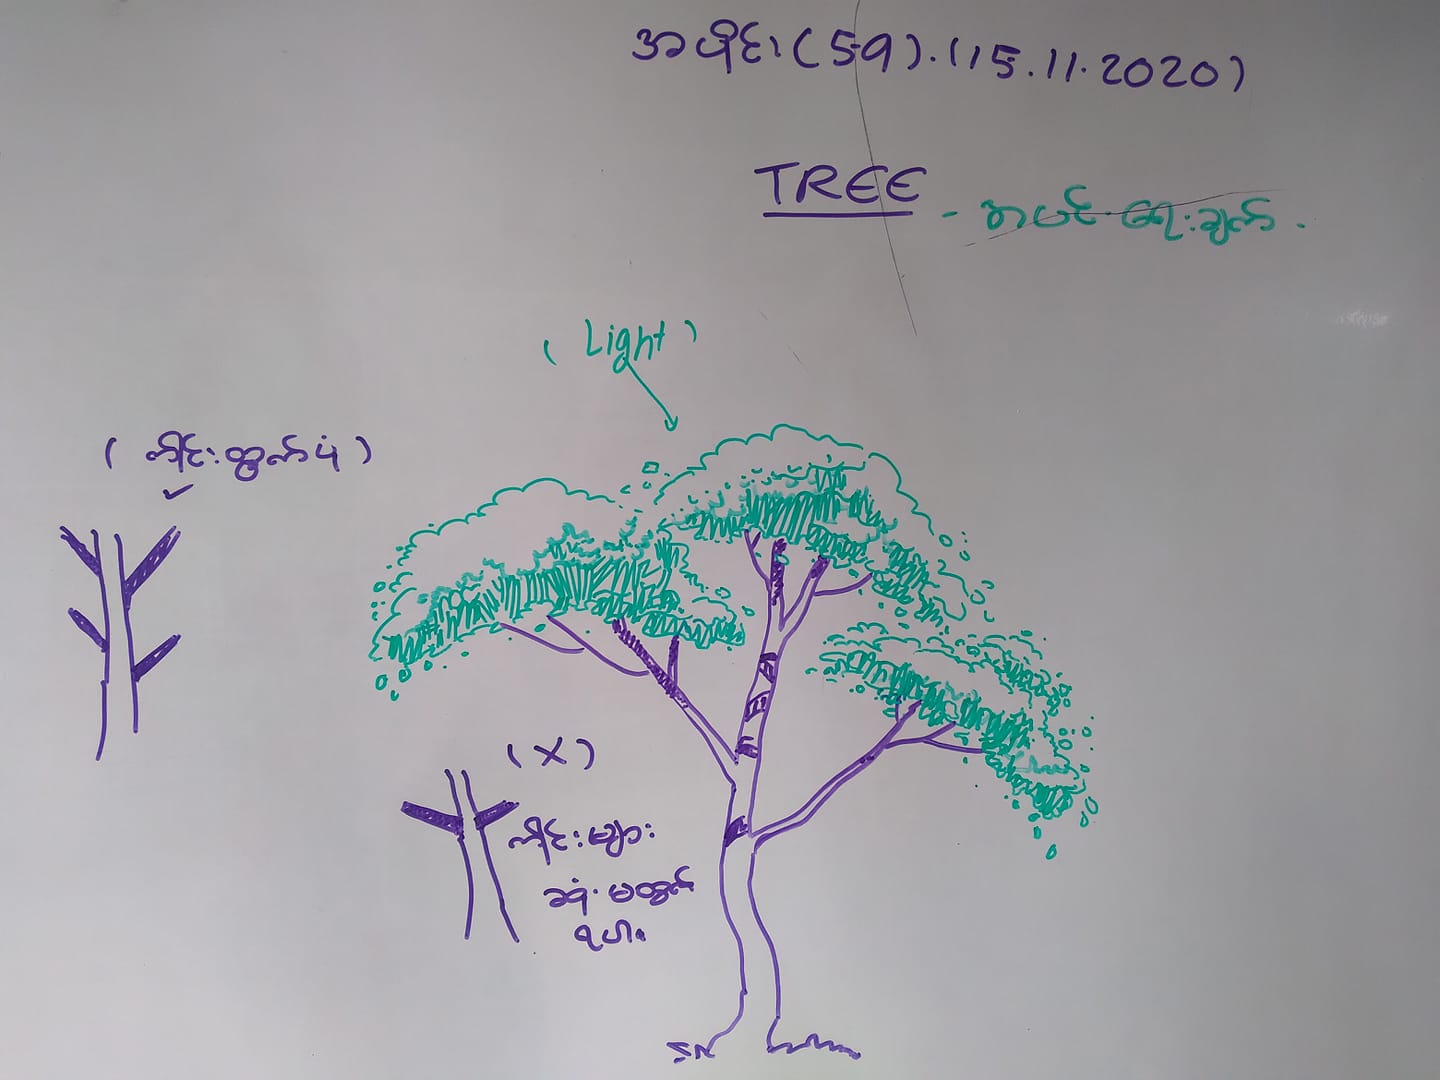 အပိုင်း (59). (15.11.2020)
TREE - အပင် ရေးချက်.
(Light)
(ကိုင်းထွက်ပုံ)
(X)
ကိုင်းများ
ဆုံ. မထွက်
ရပါ။